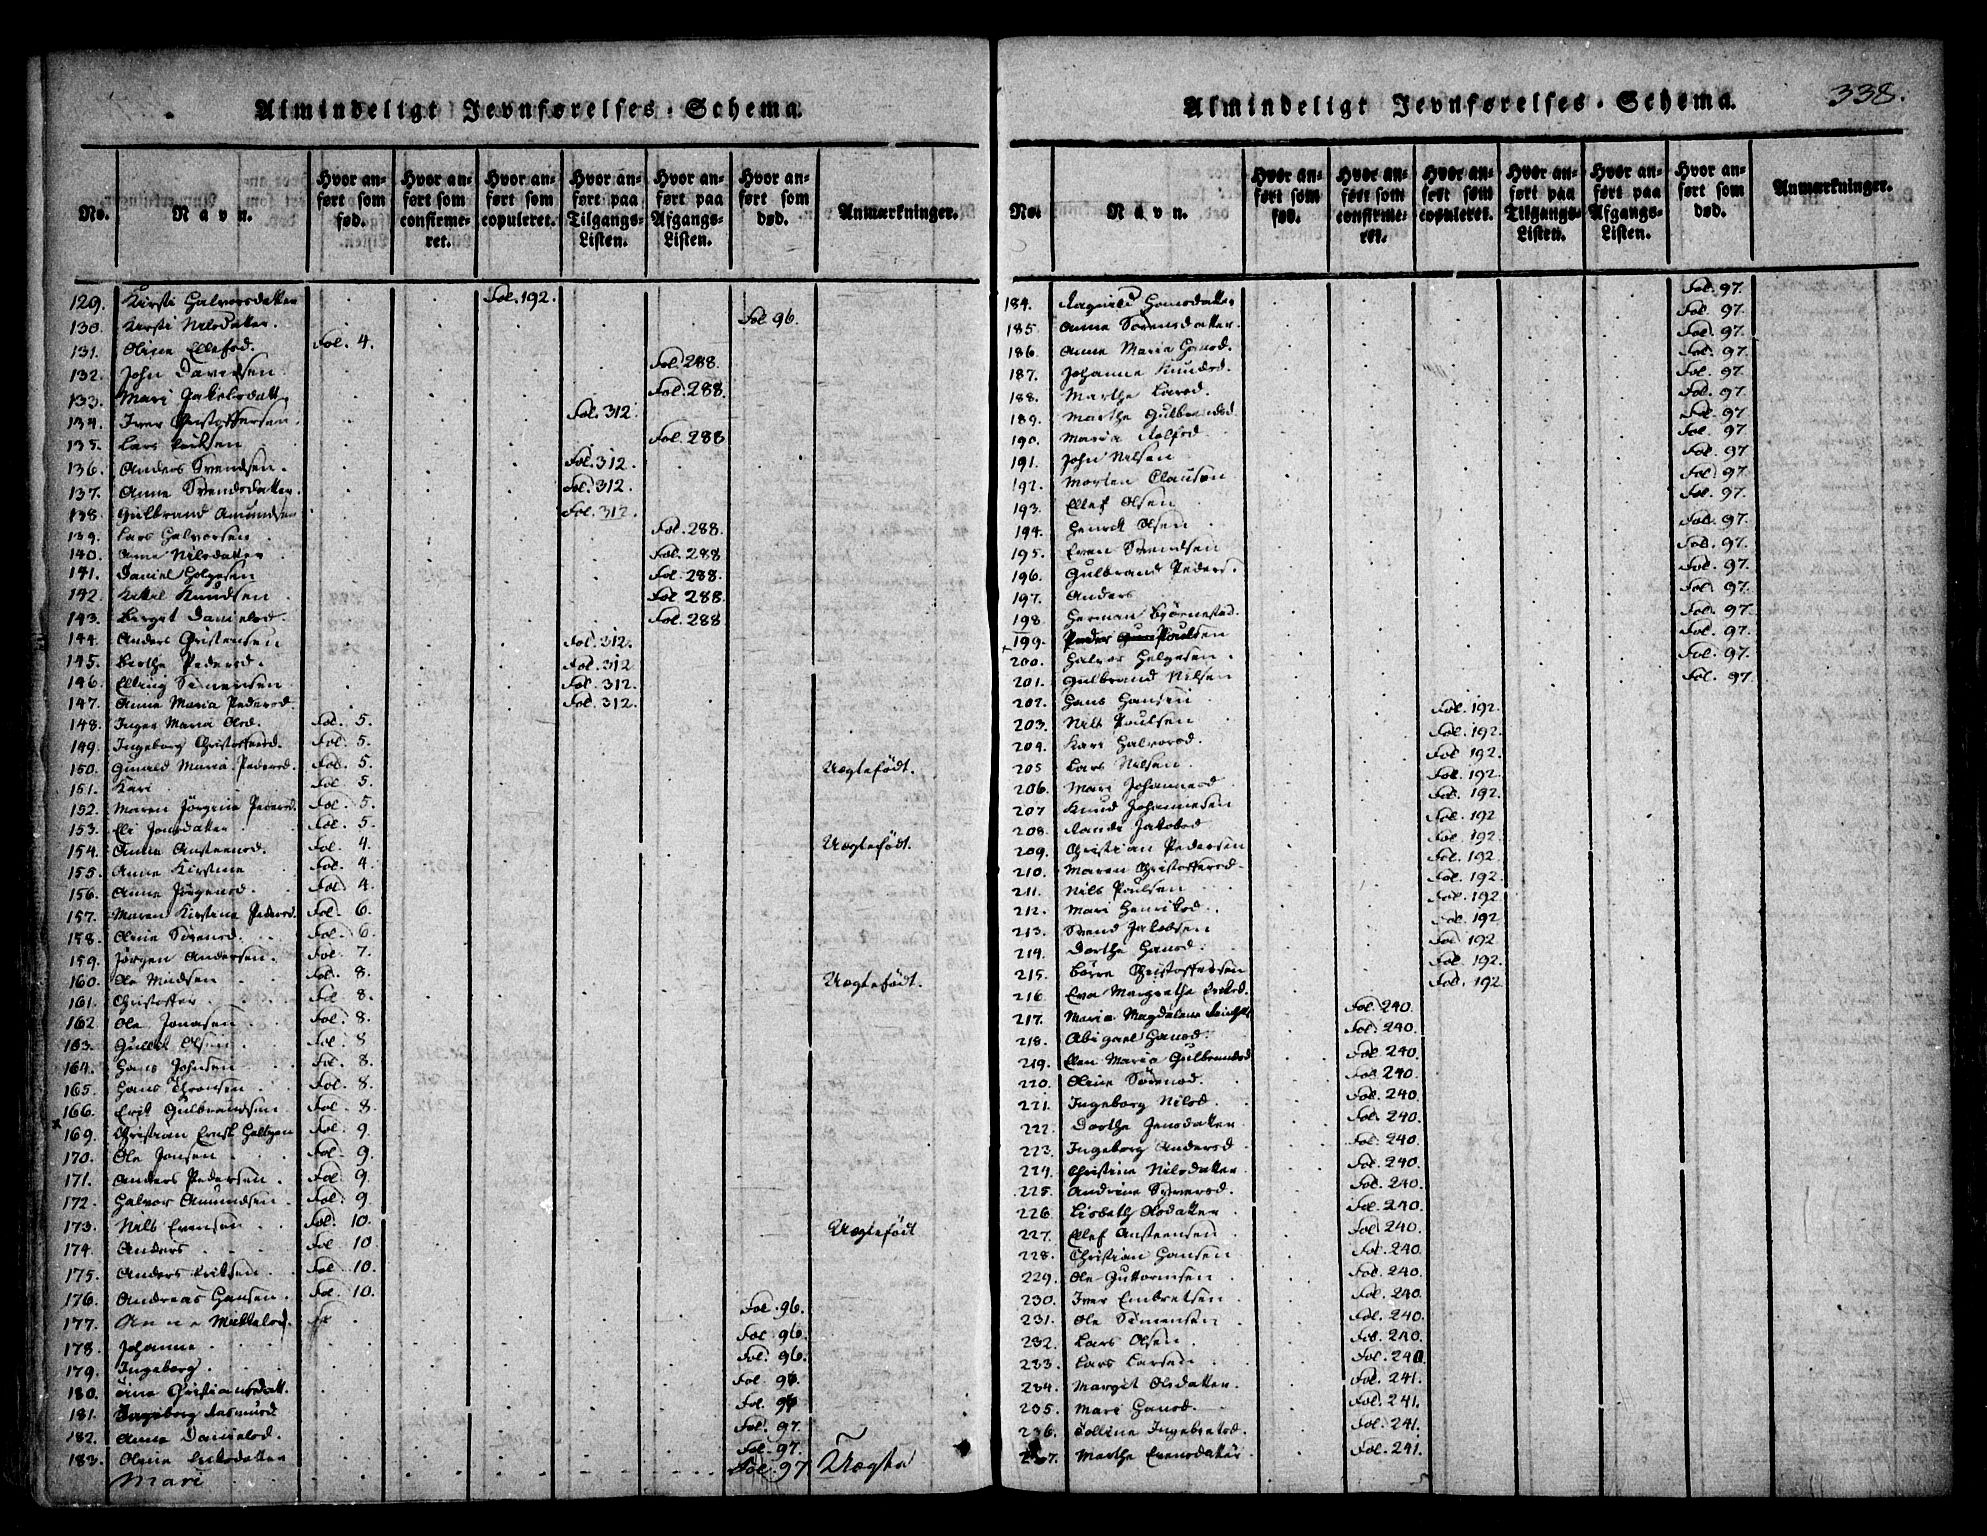 Almindeligt Jevnførelses-Schema.
No.
Navn.
Hvor anført som fød.
Hvor anført som confirmeret.
Hvor anført som copuleret.
Hvor anført paa Tilgangs-Listen.
Hvor anført paa Afgangs-Listen.
Hvor anført som død.
Anmærkninger.
129. Kirsti Halvorsdatter Fol. 192.
130. Kirsti Nilsdatter. Fol 96.
131. Oline Ellefsd. Fol. 4.
132. John Davidsen Fol. 288.
133. Mari Jakobsdatt. Fol. 288.
134. Iver Christoffersen. Fol. 312.
135. Lars Poulsen Fol. 288
136. Anders Svendsen. Fol. 312.
137. Anne Svendsdatter. Fol. 312.
138. Gulbrand Amundsen Fol. 312.
139. Lars Halvorsen Fol. 288.
140. Anne Nilsdatter Fol. 288
141. Daniel Helgesen Fol. 288.
142. Kittil Knudsen Fol 288
143. Birget Danielsd. Fol. 288
144. Anders Christensen Fol. 312.
145. Berthe Pedersd. Fol. 312
146. Elling Simensen Fol. 312.
147. Anne Maria Pedersd. Fol. 312.
148. Inger Maria Olsd. Fol. 5.
149. Ingeborg Christoffersd. Fol. 5.
150. Gunild Maria Pedersd. Fol. 5. Uægtefödt.
151. Kari Fol 5.
152. Maren Jörgine Pedersd. Fol. 5.
153. Eli Jonsdatter Fol. 5.
154. Anne Anstensd. Fol. 4. Uægtefödt.
155. Anne Kirstine Fol. 4.
156. Anne Jörgensd. Fol. 4.
157. Maren Kirstine Pedersd. Fol. 6.
158. Oline Sörensd. Fol. 6.
159. Jörgen Andersen. Fol. 7.
160. Ole Madsen Fol. 8. Uægtefödt.
161. Christoffer Fol 8.
162. Ole Jonasen Fol. 8.
163. Gullik Olsen Fol. 8
164. Hans Johnsen Fol. 8.
165. Hans Thronsen Fol. 8.
166. Erik Gulbrandsen Fol. 8.
169. Christian Ernst Heltzen Fol. 9.
170. Ole Jonsen Fol. 9.
171. Anders Pedersen. Fol. 9.
172. Halvor Amundsen. Fol. 9.
173. Nils Evensen Fol. 10. Uægtefödt
174. Anders Fol 10
175. Anders Eriksen. Fol. 10.
176. Andreas Hansen. Fol. 10.
177. Anne Mikkelsd. Fol. 96.
178. Johanne Fol 96.
179. Ingeborg Fol. 96.
180. Christiansdatt. Fol 96
181. Ingeborg Rasmusd Fol. 96
182. Anne Danielsd. Fol. 97.
183. Oline Eriksdatter Fol. 97.
Mari Fol. 97 Uægte
Almindeligt Jevnførelses-Schema.
338.
No.
Navn.
Hvor anført som fød.
Hvor anført som confirmeret.
Hvor anført som copuleret.
Hvor anført paa Tilgangs-Listen.
Hvor anført paa Afgangs-Listen.
Hvor anført som død.
Anmærkninger.
184. Ragnild Hansdatter Fol. 97.
185. Anne Sörensdatter. Fol. 97.
186. Anne Maria Hansd. Fol. 97.
187. Johanne Knudsd. Fol. 97.
188. Marthe Larsd. Fol. 97.
189. Marthe Gulbrandsd. Fol. 97.
190. Maria Rolfsd. Fol. 97.
191. John Nilsen Fol. 97
192. Morten Clausen Fol. 97.
193. Ellef Olsen Fol. 97.
194. Henrik Olsen Fol. 97.
195. Even Svendsen Fol. 97.
196. Gulbrand Peders. Fol. 97.
197. Anders Fol. 97.
198 Herman Björnestad. Fol. 97.
199. Peder Poulsen Fol. 97.
200. Halvor Helgesen. Fol. 97.
201. Gulbrand Nilsen Fol. 97
202. Hans Hansen Fol. 192.
203. Nils Poulsen Fol. 192.
204. Kari Halvorsd. Fol 192.
205 Lars Nilsen Fol. 192.
206. Mari Johannesd Fol. 192.
207 Knud Johannesen Fol. 192
208. Randi Jakobsd Fol 192.
209. Christian Pedersen Fol. 192.
210. Maren Christoffersd. Fol. 192.
211. Nils Poulsen Fol. 192.
212. Mari Henriksd. Fol. 192
213. Svend Jakobsen Fol 192.
214. Dorthe Hansd. Fol. 192.
215. Börre Christoffersen Fol. 192
216. Eva Margrethe Eriksd. Fol. 240.
217. Maria Magdalena Fol. 240.
218. Abigael Hansd. Fol 240.
219. Elen Maria Gulbrandsd Fol 240.
220. Oline Sörensd. Fol. 240.
221. Ingeborg Nilsd. Fol. 240.
222. Dorthe Jensdatter Fol. 240.
223. Ingeborg Andersd Fol. 240.
224. Christine Nilsdatter. Fol. 240.
225. Andrine Syversd. Fol. 240.
226. Lisbeth Olsdatter Fol 240.
227. Ellef Anstensen Fol 240.
228. Christian Hansen Fol. 240.
229. Ole Guttormsen Fol. 240.
230. Iver Embretsen Fol. 240.
231. Ole Simensen Fol. 240.
232. Lars Olsen Fol. 240.
233. Lars Larsen Fol. 241.
234. Margit Olsdatter. Fol. 241.
235. Mari Hansd. Fol. 241.
236. Colline Ingebretsd. Fol. 241.
237. Marthe Evensdatter Fol. 241.